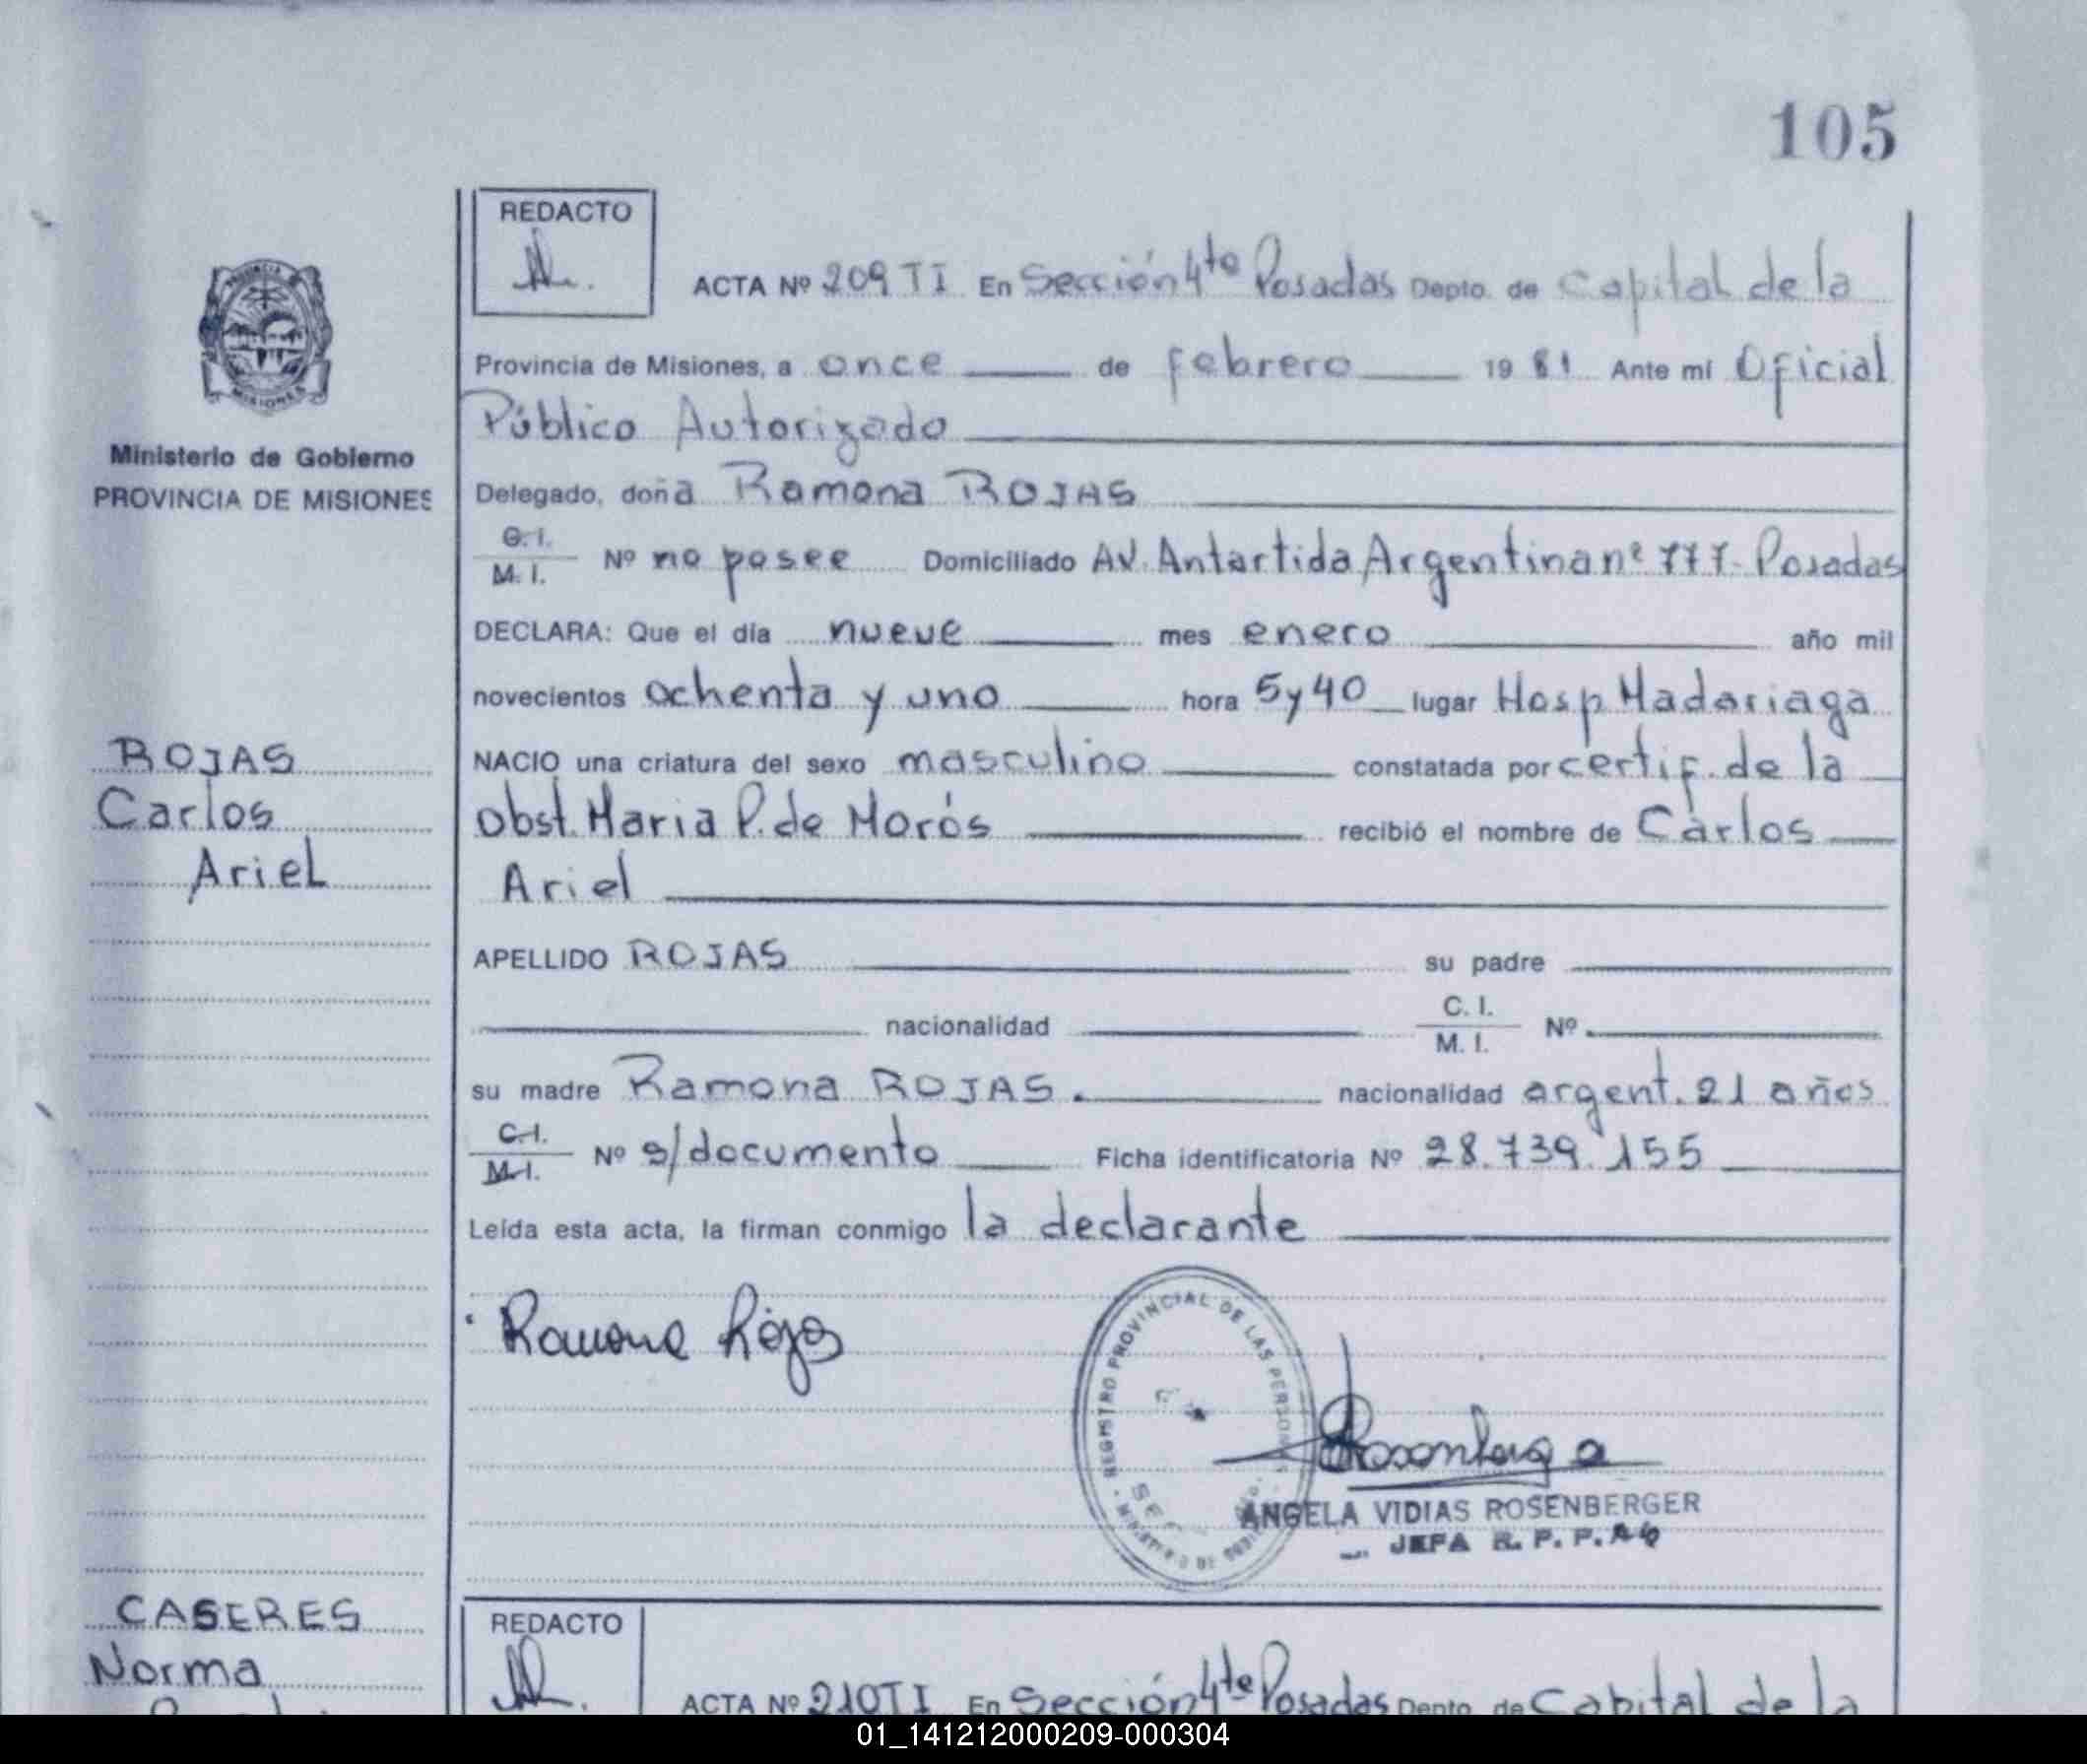 105
REDACTO
ACTA Nº 209 TI En Sección 4ta Posadas Depto. de Capital de la
Provincia de Misiones, a once de febrero 1981 Ante mí Oficial
Público Autorizado
Ministerio de Gobierno
PROVINCIA DE MISIONES
Delegado, doña Ramona ROJAS
C.I. M.I. Nº no posee Domiciliado Av. Antartida Argentina nº 777 - Posadas
DECLARA: Que el día nueve mes enero año mil
novecientos ochenta y uno hora 5 y 40 lugar Hosp Madariaga
NACIO una criatura del sexo masculino constatada por certif. de la
obst. Maria P. de Morós recibió el nombre de Carlos
Ariel
ROJAS
Carlos
Ariel
APELLIDO ROJAS su padre
nacionalidad C. I. M. I. Nº
su madre Ramona ROJAS. nacionalidad argent. 21 años
C.I. M.I. Nº s/documento Ficha identificatoria Nº 28.739.155
Leída esta acta, la firman conmigo la declarante
Ramona Rojas
REGISTRO PROVINCIAL DE LAS PERSONAS
ANGELA VIDIAS ROSENBERGER
JEFA R. P. P.
CASERES
Norma
REDACTO
ACTA Nº 210 TI En Sección 4ta Posadas Depto de Capital de la
01_141212000209-000304